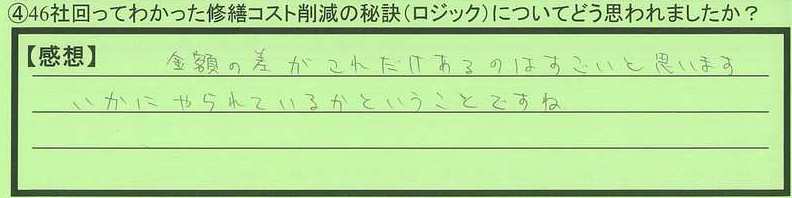 ④46社回ってわかった修繕コスト削減の秘訣（ロジック）についてどう思われましたか？
【感想】 金額の差がこれだけあるのはすごいと思います
いかにやられているかということですね